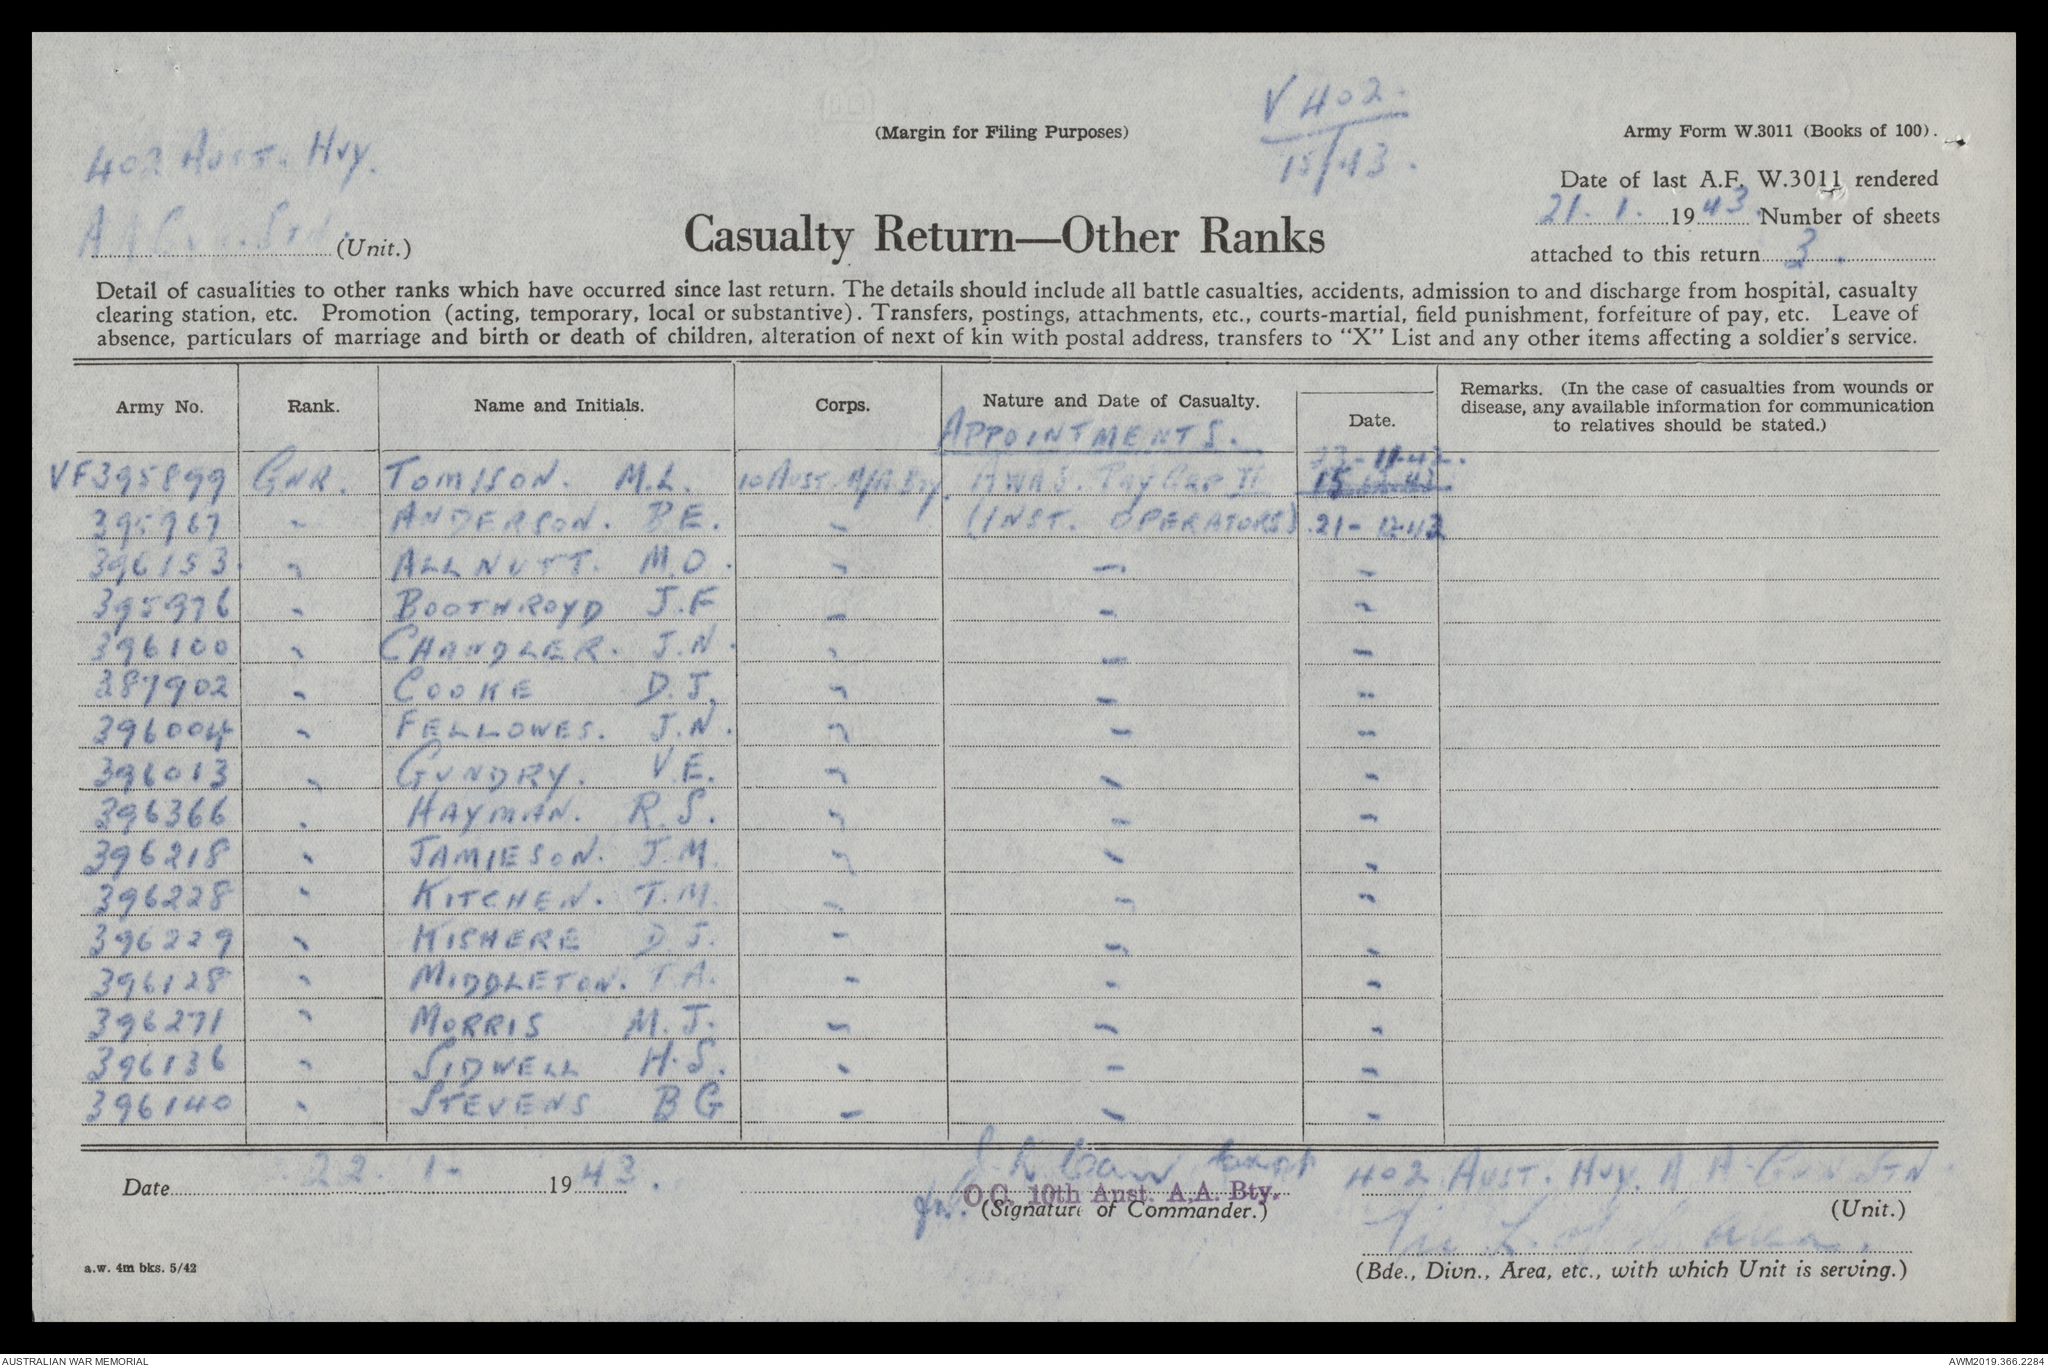 V 402.
15/43.
(Margin for Filing Purposes)
Army Form W.3011 (Books of 100).
402 AUST. HVY.
A A Gun Stn. (Unit.)
Date of last A.F. W.3011 rendered
21. 1. 1943. Number of sheets
attached to this return 3.
Casualty Return—Other Ranks
Detail of casualities to other ranks which have occurred since last return. The details should include all battle casualties, accidents, admission to and discharge from hospital, casualty
clearing station, etc. Promotion (acting, temporary, local or substantive). Transfers, postings, attachments, etc., courts-martial, field punishment, forfeiture of pay, etc. Leave of
absence, particulars of marriage and birth or death of children, alteration of next of kin with postal address, transfers to "X" List and any other items affecting a soldier's service.
Army No. Rank. Name and Initials. Corps. Nature and Date of Casualty. Date. Remarks. (In the case of casualties from wounds or
disease, any available information for communication
to relatives should be stated.)
APPOINTMENTS.
23-11-42.
VF395899 GNR. TOMISON. M.L. 10 AUST A/A Bty. AWAS. PAY GRP II 15
395967 " ANDERSON. B.E. " (INST. OPERATORS) 21-12-42
396153 " ALLNUTT. M.O. " " "
395976 " BOOTHROYD J.F " " "
396100 " CHANDLER. J.N. " " "
387902 " COOKE D.J. " " "
396004 " FELLOWES. J.N. " " "
396013 " GUNDRY. V.E. " " "
396366 " HAYMAN. R.S. " " "
396218 " JAMIESON. J.M. " " "
396228 " KITCHEN. T.M. " " "
396229 " KISHERE D.J. " " "
396128 " MIDDLETON. T.A. " " "
396271 " MORRIS M.J. " " "
396136 " SIDWELL H.S. " " "
396140 " STEVENS B G " " "
Date 22. 1- 1943.
for O.C. 10th Aust. A.A. Bty.
(Signature of Commander.)
402 AUST. HVY. A A GUN STN.
(Unit.)
Vic L. of C. Area.
(Bde., Divn., Area, etc., with which Unit is serving.)
a.w. 4m bks. 5/42
AUSTRALIAN WAR MEMORIAL
AWM2019.366.2284